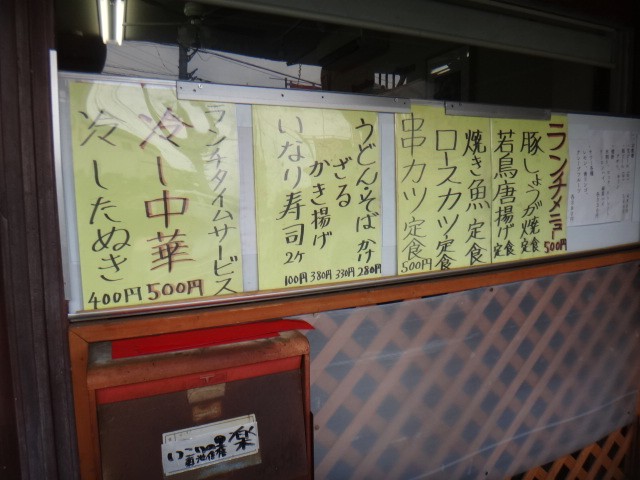 ランチメニュー 500円
豚しょうが焼定食
若鳥唐揚げ定食
焼き魚定食
ロースカツ定食
串カツ定食 500円
うどん・そば かけ 280円
ざる 330円
かき揚げ 380円
いなり寿司 2ヶ 100円
ランチタイムサービス
冷し中華 500円
冷したぬき 400円
楽